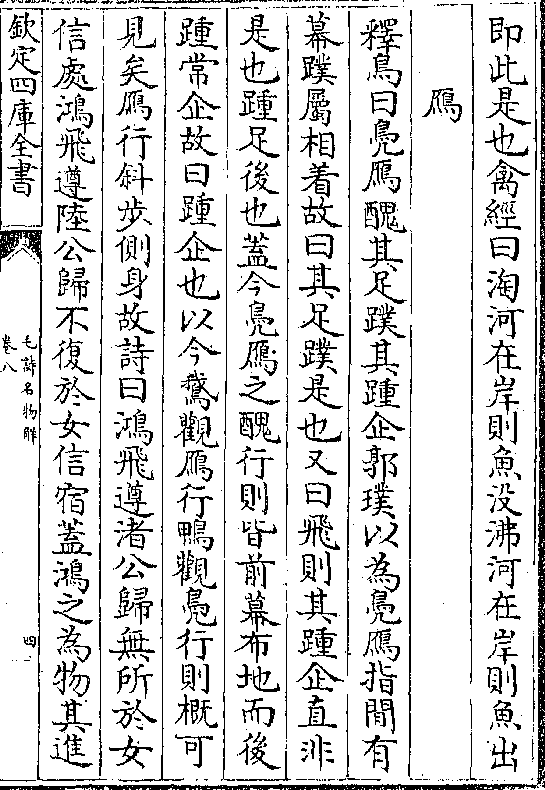 即此是也禽經曰淘河在岸則魚没沸河在岸則魚出
鴈
釋鳥曰鳧鴈醜其足蹼其踵企郭璞以為鳧鴈指間有
幕蹼屬相着故曰其足蹼是也又曰飛則其踵企直非
是也踵足後也蓋今鳧鴈之醜行則皆前幕布地而後
踵常企故曰踵企也以今鵞觀鴈行鴨觀鳧行則概可
見矣鴈行斜步側身故詩曰鴻飛遵渚公歸無所於女
信處鴻飛遵陸公歸不復於女信宿蓋鴻之為物其進
欽定四庫全書
毛詩名物解
卷八
四